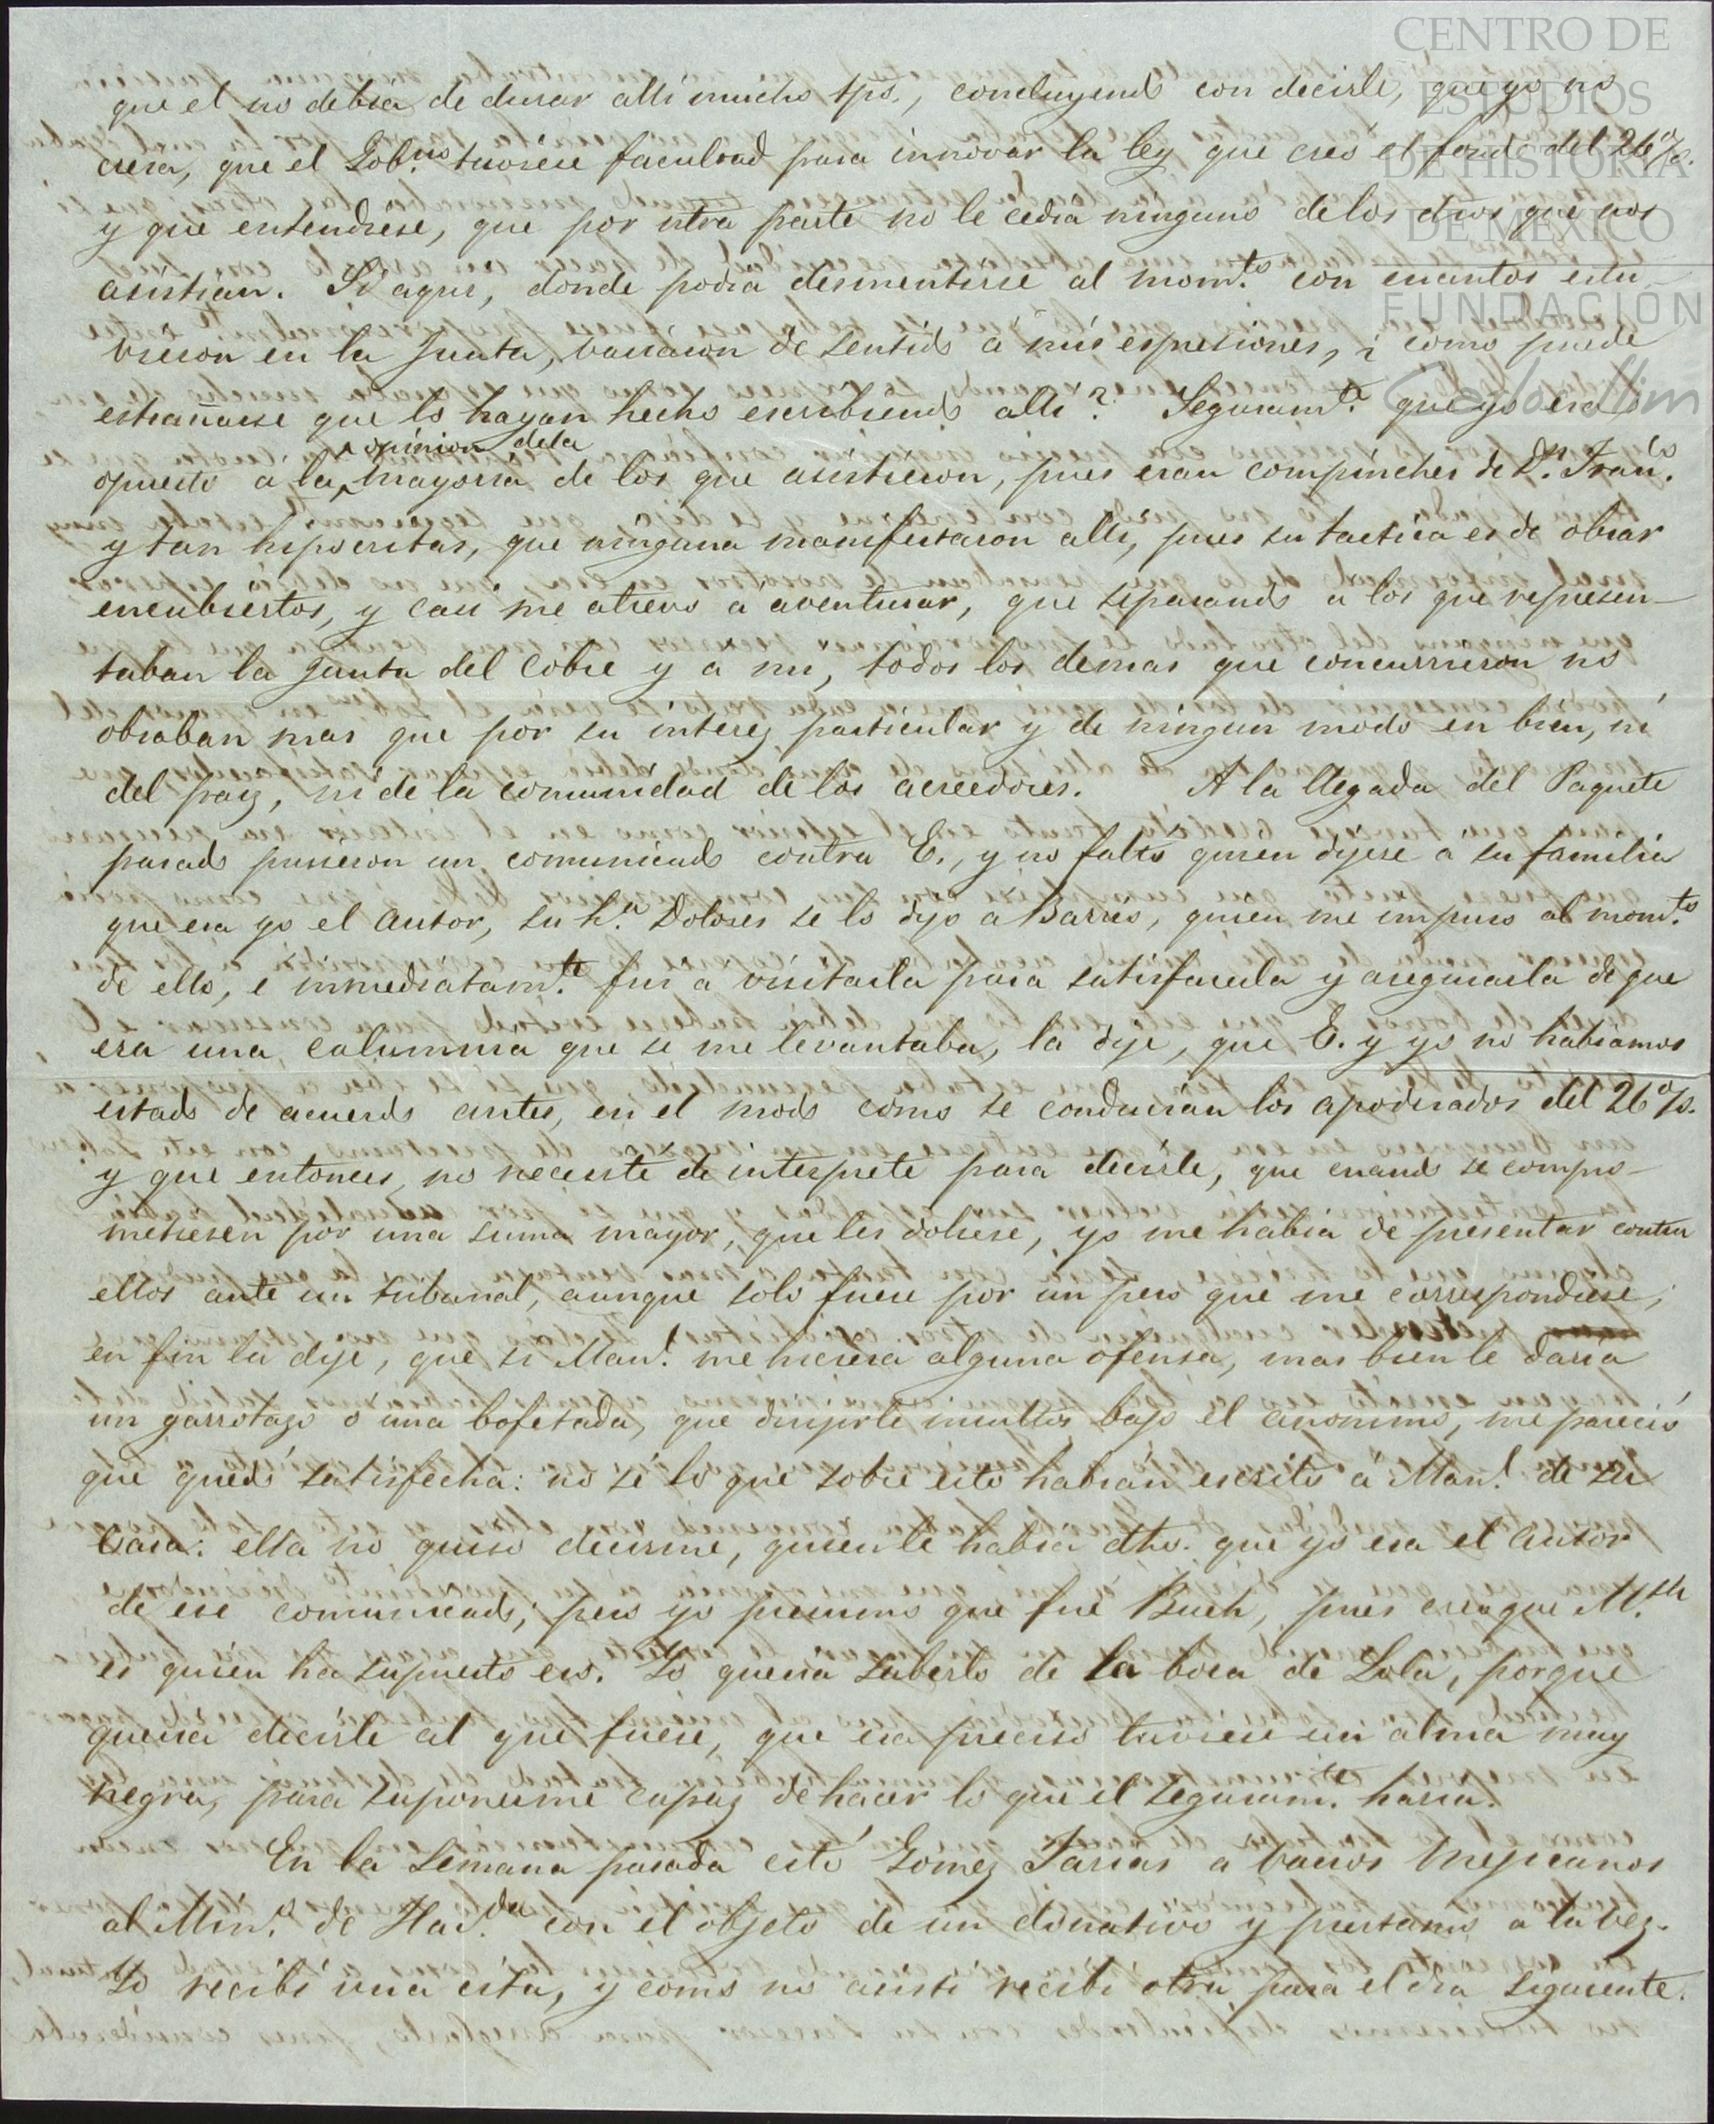 CENTRO DE
ESTUDIOS
DE HISTORIA
DE MÉXICO
FUNDACIÓN
que el no debia de durar alli mucho tpo., concluyendo con decirle, que yo no
creia, que el Gob.no tuviese facultad para innovar la ley que creó el fondo del 26%.
y que entendiese, que por ntra parte no le cedia ninguno de los dros que nos
asistian. Si aqui, donde podia desmentirse al mom.to con cuantos estu
vieron en la Junta, variaron de sentido á mis espresiones, ¿ como puede
estrañarse que lo hayan hecho escribiendo alli? Seguram.te que yo era
opuesto a la opinion de la mayoria de los que asistieron, pues eran compinches de Dn. Fran.co
y tan hipocritas, que ninguna manifestaron alli, pues su tactica es de obrar
encubiertos, y casi me atrevo á aventurar, que separando a los que represen-
taban la Junta del Cobre y a mi, todos los demas que concurrieron no
obraban mas que por su interez particular y de ningun modo en bien, ni
del paiz, ni de la comunidad de los acreedores. A la llegada del Paquete
pasado pusieron un comunicado contra E., y no faltó quien dijese á su familia
que era yo el autor, su h.a Dolores se lo dijo a Barrio, quien me impuso al mom.to
de ello, é inmediatam.te fui a visitarla para satisfacerla y asegurarla de que
era una calumnia que se me levantaba, la dije, que E. y yo no habiamos
estado de acuerdo antes, en el modo como se conducian los apoderados del 26%.
y que entonces, no necesité de interprete para decirle, que cuando se compro-
metiesen por una suma mayor, que les doliese, yo me habia de presentar contra
ellos ante un tribunal, aunque solo fuese por un peso que me correspondiese;
en fin la dije, que si Man.l me hiciera alguna ofensa, mas bien le daria
un garrotazo o una bofetada, que dirijirle insultos bajo el anonimo, me pareció
que quedó satisfecha: no sé lo que sobre esto habian escrito á Man.l de su
Casa: ella no quiso decirme, quien le habia dho. que yo era el autor
de ese comunicado; pero yo presumo que fué Buch, pues creo que M.sh
es quien ha supuesto eso. Yo queria saberlo de la boca de Lola, porque
queria decirle al que fuese, que era preciso tuviese un alma muy
negra, para suponerme capaz de hacer lo que él seguram.te haria.
En la semana pasada citó Gomez Farias a varios Mejicanos
al Min.o de Hac.da con el objeto de un donativo y prestamo a la vez.
Yo recibí una cita, y como no asistí recibi otra para el dia siguiente.